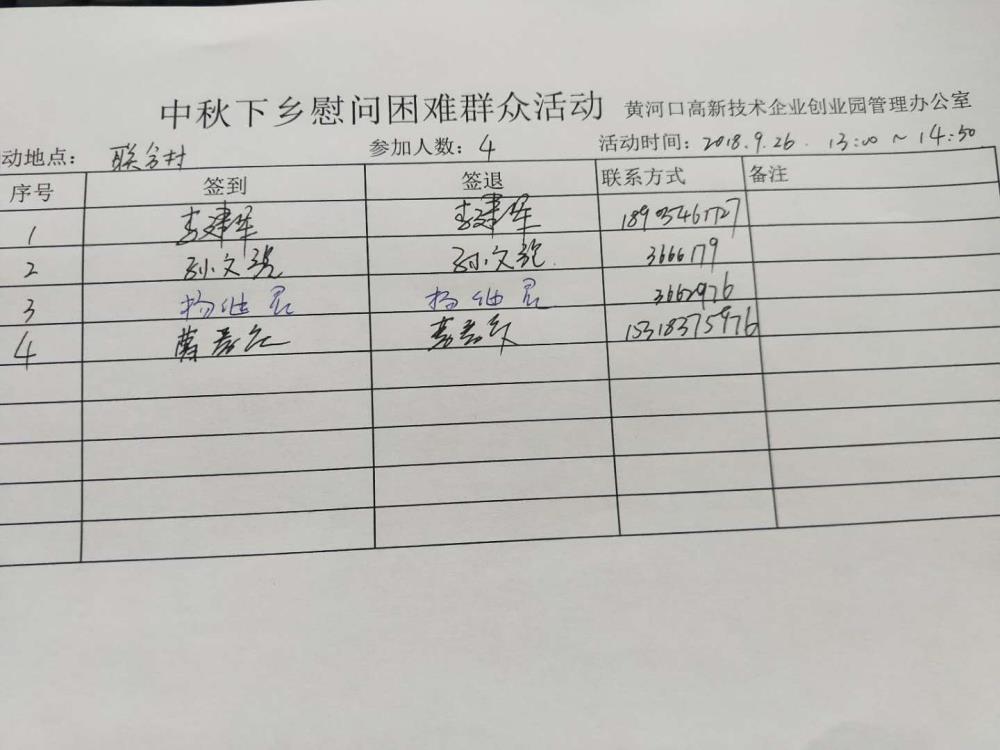 中秋下乡慰问困难群众活动 黄河口高新技术企业创业园管理办公室
动地点： 联合村 参加人数：4 活动时间：2018.9.26. 13:00～14:50
序号 签到 签退 联系方式 备注
1 李建军 李建军
2 孙文 孙文 3666179
3 杨继 杨继 3662976
4 15318375976